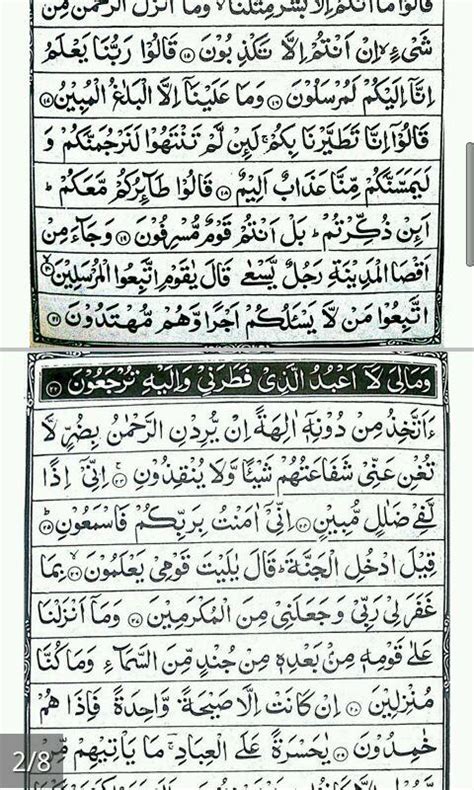 قَالُوْا مَاۤ اَنْتُمْ اِلَّا بَشَرٌ مِّثْلُنَا ۙ وَمَاۤ اَنْزَلَ الرَّحْمٰنُ مِنْ
شَیْءٍ ۙ اِنْ اَنْتُمْ اِلَّا تَكْذِبُوْنَ ﴿۱۵﴾ قَالُوْا رَبُّنَا یَعْلَمُ
اِنَّاۤ اِلَیْكُمْ لَمُرْسَلُوْنَ ﴿۱۶﴾ وَمَا عَلَیْنَاۤ اِلَّا الْبَلٰغُ الْمُبِیْنُ ﴿۱۷﴾
قَالُوْۤا اِنَّا تَطَیَّرْنَا بِكُمْ ۚ لَىِٕنْ لَّمْ تَنْتَهُوْا لَنَرْجُمَنَّكُمْ وَ
لَیَمَسَّنَّكُمْ مِّنَّا عَذَابٌ اَلِیْمٌ ﴿۱۸﴾ قَالُوْا طَآىِٕرُكُمْ مَّعَكُمْ ؕ
اَىِٕنْ ذُكِّرْتُمْ ؕ بَلْ اَنْتُمْ قَوْمٌ مُّسْرِفُوْنَ ﴿۱۹﴾ وَجَآءَ مِنْ
اَقْصَا الْمَدِیْنَةِ رَجُلٌ یَّسْعٰی قَالَ یٰقَوْمِ اتَّبِعُوا الْمُرْسَلِیْنَ ﴿۲۰﴾
اتَّبِعُوْا مَنْ لَّا یَسْـَٔلُكُمْ اَجْرًا وَّهُمْ مُّهْتَدُوْنَ ﴿۲۱﴾
وَمَا لِیَ لَاۤ اَعْبُدُ الَّذِیْ فَطَرَنِیْ وَاِلَیْهِ تُرْجَعُوْنَ ﴿۲۲﴾
ءَاَتَّخِذُ مِنْ دُوْنِهٖۤ اٰلِهَةً اِنْ یُّرِدْنِ الرَّحْمٰنُ بِضُرٍّ لَّا
تُغْنِ عَنِّیْ شَفَاعَتُهُمْ شَیْـًٔا وَّلَا یُنْقِذُوْنِ ﴿۲۳﴾ اِنِّیْۤ اِذًا
لَّفِیْ ضَلٰلٍ مُّبِیْنٍ ﴿۲۴﴾ اِنِّیْۤ اٰمَنْتُ بِرَبِّكُمْ فَاسْمَعُوْنِ ﴿۲۵﴾
قِیْلَ ادْخُلِ الْجَنَّةَ ؕ قَالَ یٰلَیْتَ قَوْمِیْ یَعْلَمُوْنَ ﴿۲۶﴾ بِمَا
غَفَرَ لِیْ رَبِّیْ وَجَعَلَنِیْ مِنَ الْمُكْرَمِیْنَ ﴿۲۷﴾ وَمَاۤ اَنْزَلْنَا
عَلٰی قَوْمِهٖ مِنْۢ بَعْدِهٖ مِنْ جُنْدٍ مِّنَ السَّمَآءِ وَمَا كُنَّا
مُنْزِلِیْنَ ﴿۲۸﴾ اِنْ كَانَتْ اِلَّا صَیْحَةً وَّاحِدَةً فَاِذَا هُمْ
خٰمِدُوْنَ ﴿۲۹﴾ یٰحَسْرَةً عَلَی الْعِبَادِ ۚ مَا یَاْتِیْهِمْ مِّنْ
2/8